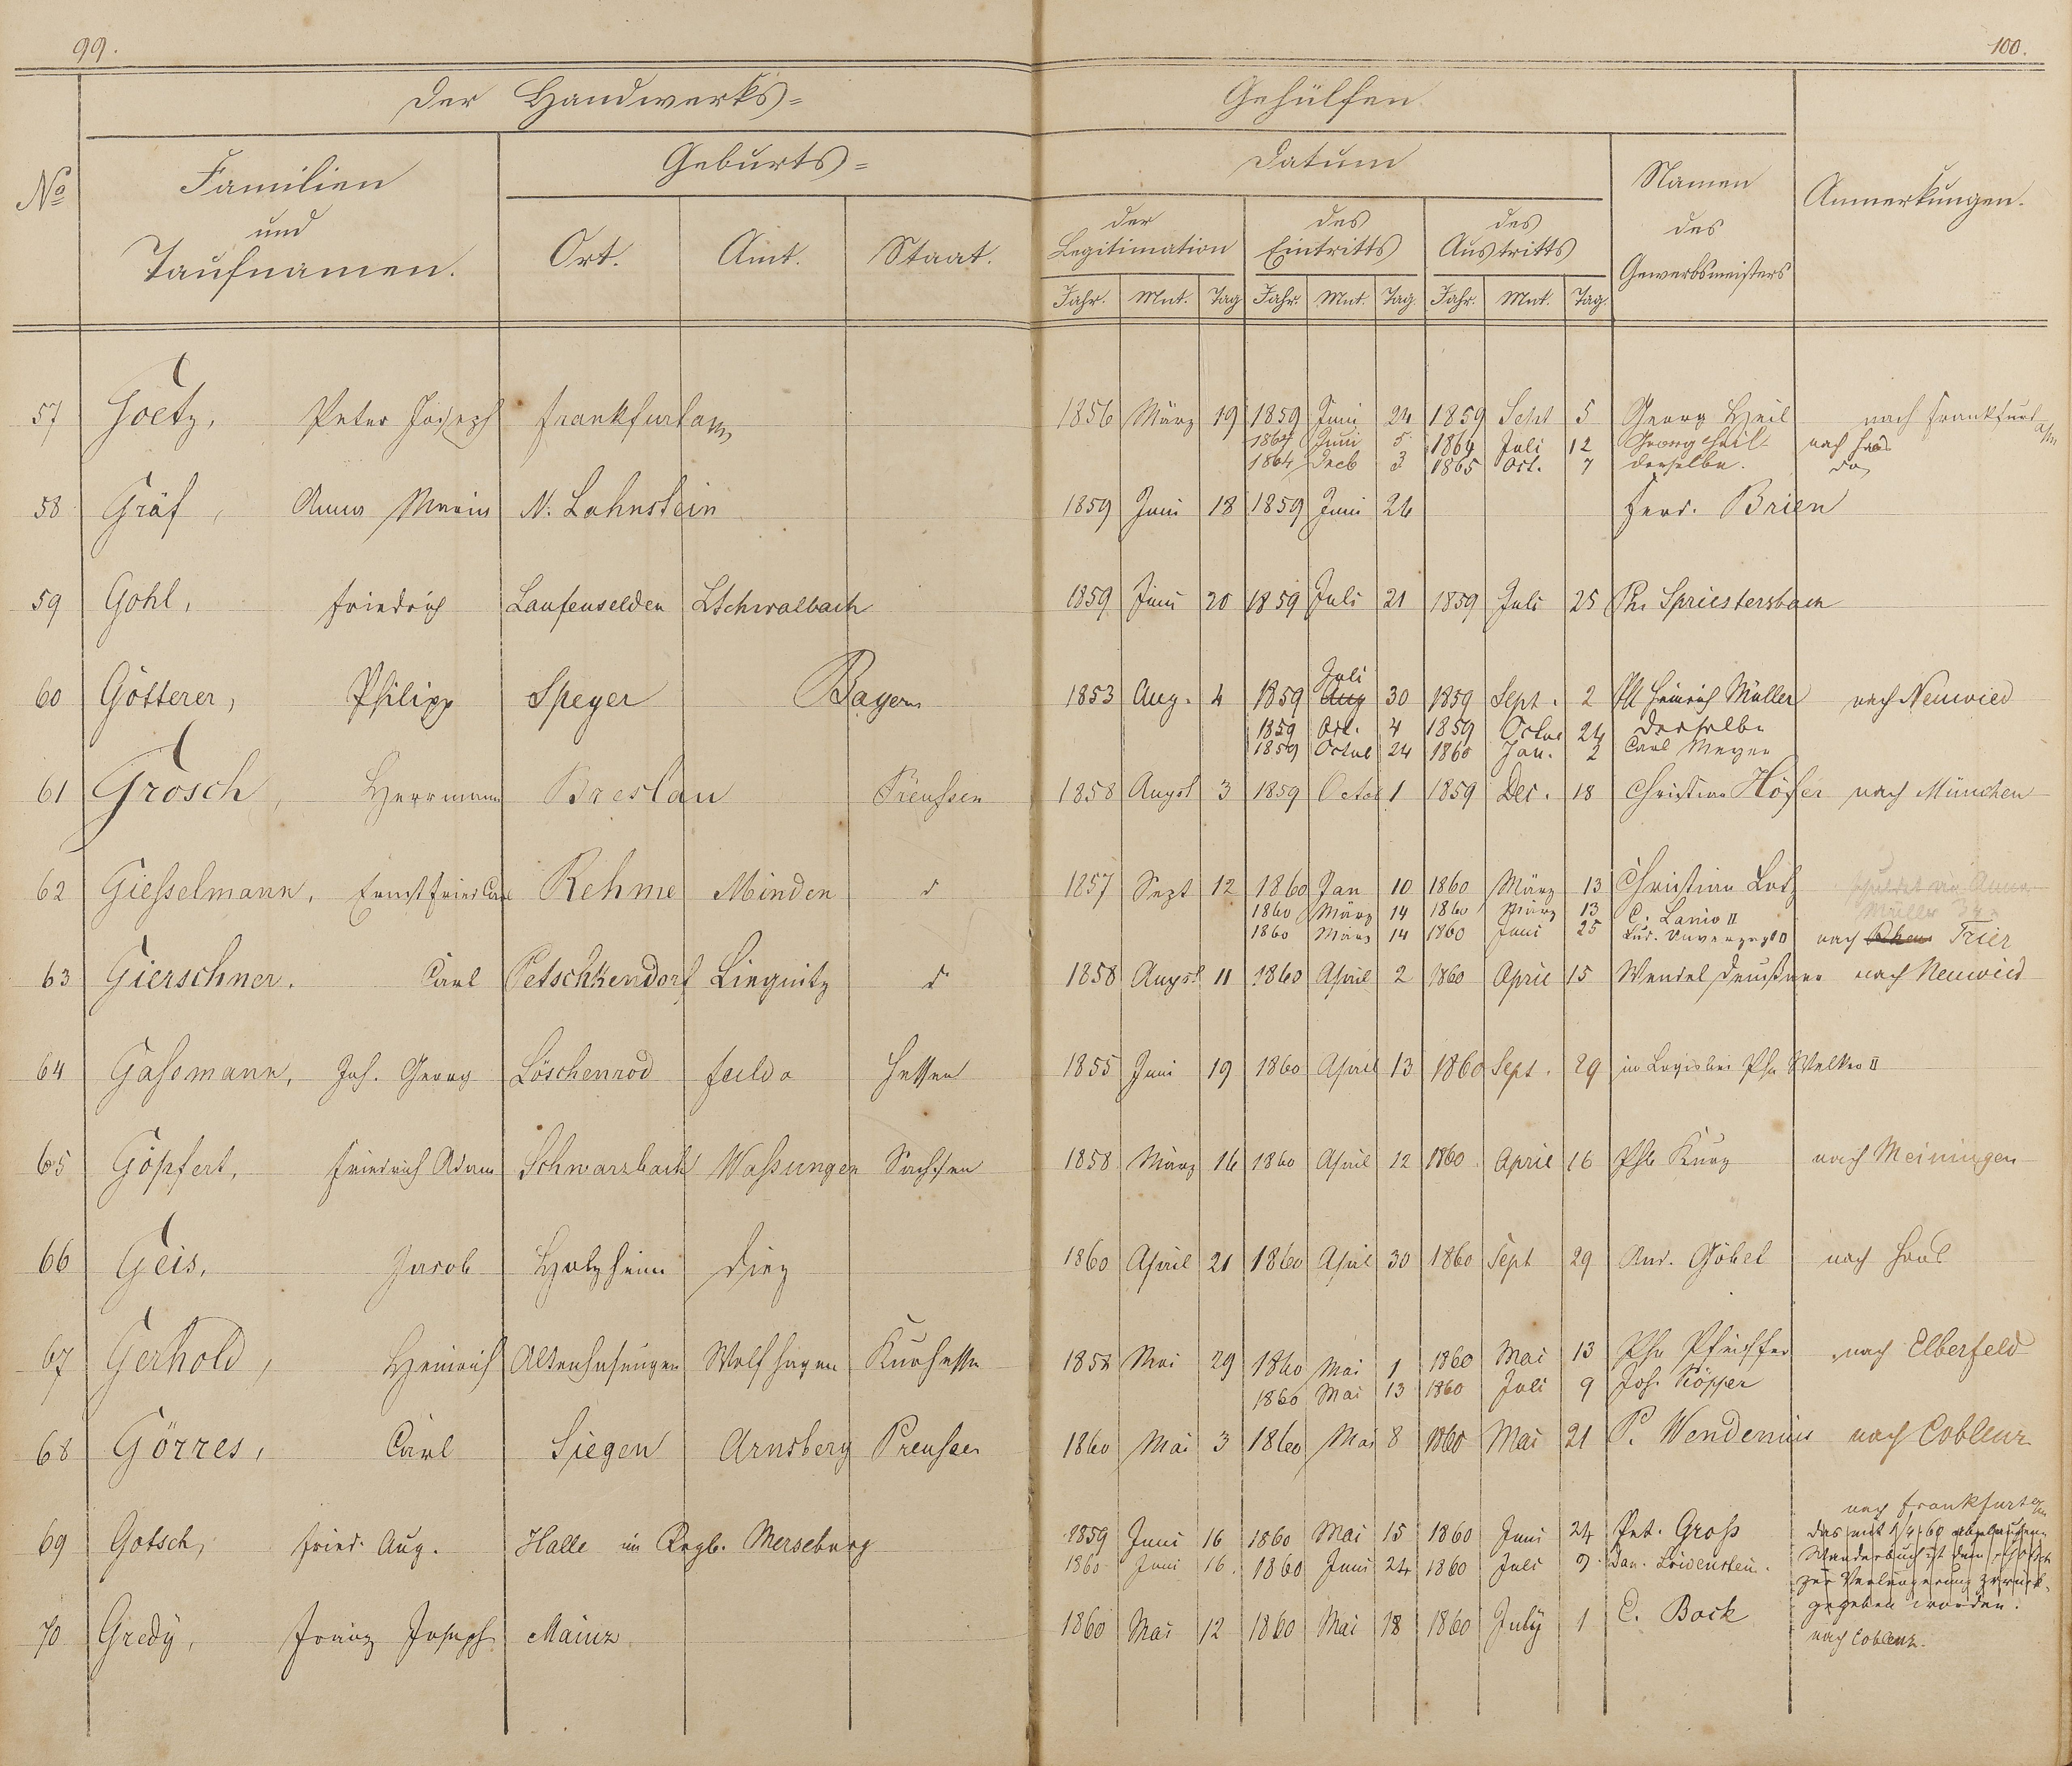 99.
100.
Der Handwerks= Gehülfen
No
Familien und Taufnamen.
Geburts=
Ort. Amt. Staat.
Datum
der Legitimation des Eintritts des Austritts
Jahr. Mnt. Tag Jahr. Mnt. Tag. Jahr. Mnt. Tag.
Namen des Gewerbsmeisters
Anmerkungen.
57 Goetz, Peter Joseph Frankfurt a/m 1856 März 19 1859 Juni 24 1859 Sept 5 Georg Heil nach Frankfurt a/m
1864 Juni 5 1864 Juli 12 Georg Heil nach Haus
1864 Decb 3 1865 Oct. 7 derselbe. do
58 Gräf, Anna Maria N. Lahnstein 1859 Juni 18 1859 Juni 26 Ferd. Brien
59 Gohl, Friedrich Laufenselden LSchwalbach 1859 Juni 20 1859 Juli 21 1859 Juli 25 Phi Spriestersbach
60 Götterer, Philipp Speyer Bayern 1853 Aug. 4 1859 Aug Juli 30 1859 Sept. 2 Ph Heinrich Müller nach Neuwied
1859 Oct. 4 1859 Octbr 24 derselbe
1859 Octbr 24 1860 Jan. 2 Carl Meyer
61 Grosch, Herrmann Breslau Preussen 1858 Augst 3 1859 Octob 1 1859 Dec. 18 Christian Höfer nach München
62 Giesselmann, Ernst Fried Carl Rehme Minden do 1857 Sept 12 1860 Jan 10 1860 März 13 Christian Lotz
1860 März 14 1860 März 13 C. Lanio II
1860 März 14 1860 Juni 25 Lud. Unverzagt II nach Rhens Trier
63 Gierschner. Carl Petschkendorf Liegnitz do 1858 Augst 11 1860 April 2 1860 April 15 Wendel nach Neuwied
64 Gassmann, Joh. Georg Löschenrod Fulda Hessen 1855 Juni 19 1860 April 13 1860 Sept. 29 in Logis bei Phi Welker II
65 Göpfert, Friedrich Adam Schwarzbach Wassungen Sachsen 1858 März 16 1860 April 12 1860 April 16 Phil Kurz nach Meiningen
66 Geis, Jacob Holzheim Diez 1860 April 21 1860 April 30 1860 Sept 29 And. Göbel nach Haus
67 Gerhold, Heinrich Altenhasungen Wolfhagen Kurhessen 1858 Mai 29 1860 Mai 1 1860 Mai 13 Phi Pfeiffer nach Elberfeld
1860 Mai 13 1860 Juli 9 Joh. Köpper
68 Görres, Carl Siegen Arnsberg Preussen 1860 Mai 3 1860 Mai 8 1860 Mai 21 P. Wendenius nach Coblenz
69 Gotsch, Fried. Aug. Halle im Regb. Merseburg 1859 Juni 16 1860 Mai 15 1860 Juni 24 Pet. Gross nach Frankfurt a/m
1860 Juni 16. 1860 Juni 24 1860 Juli 9. Dan. Löwenstein.
Das mit 1/4 60 abgelaufene
Wanderbuch ist dem Gotsch
zur Verlängerung zurück-
gegeben worden.
70 Gredÿ, Franz Joseph Mainz 1860 Mai 12 1860 Mai 18 1860 Julÿ 1 C. Bock nach Coblenz.